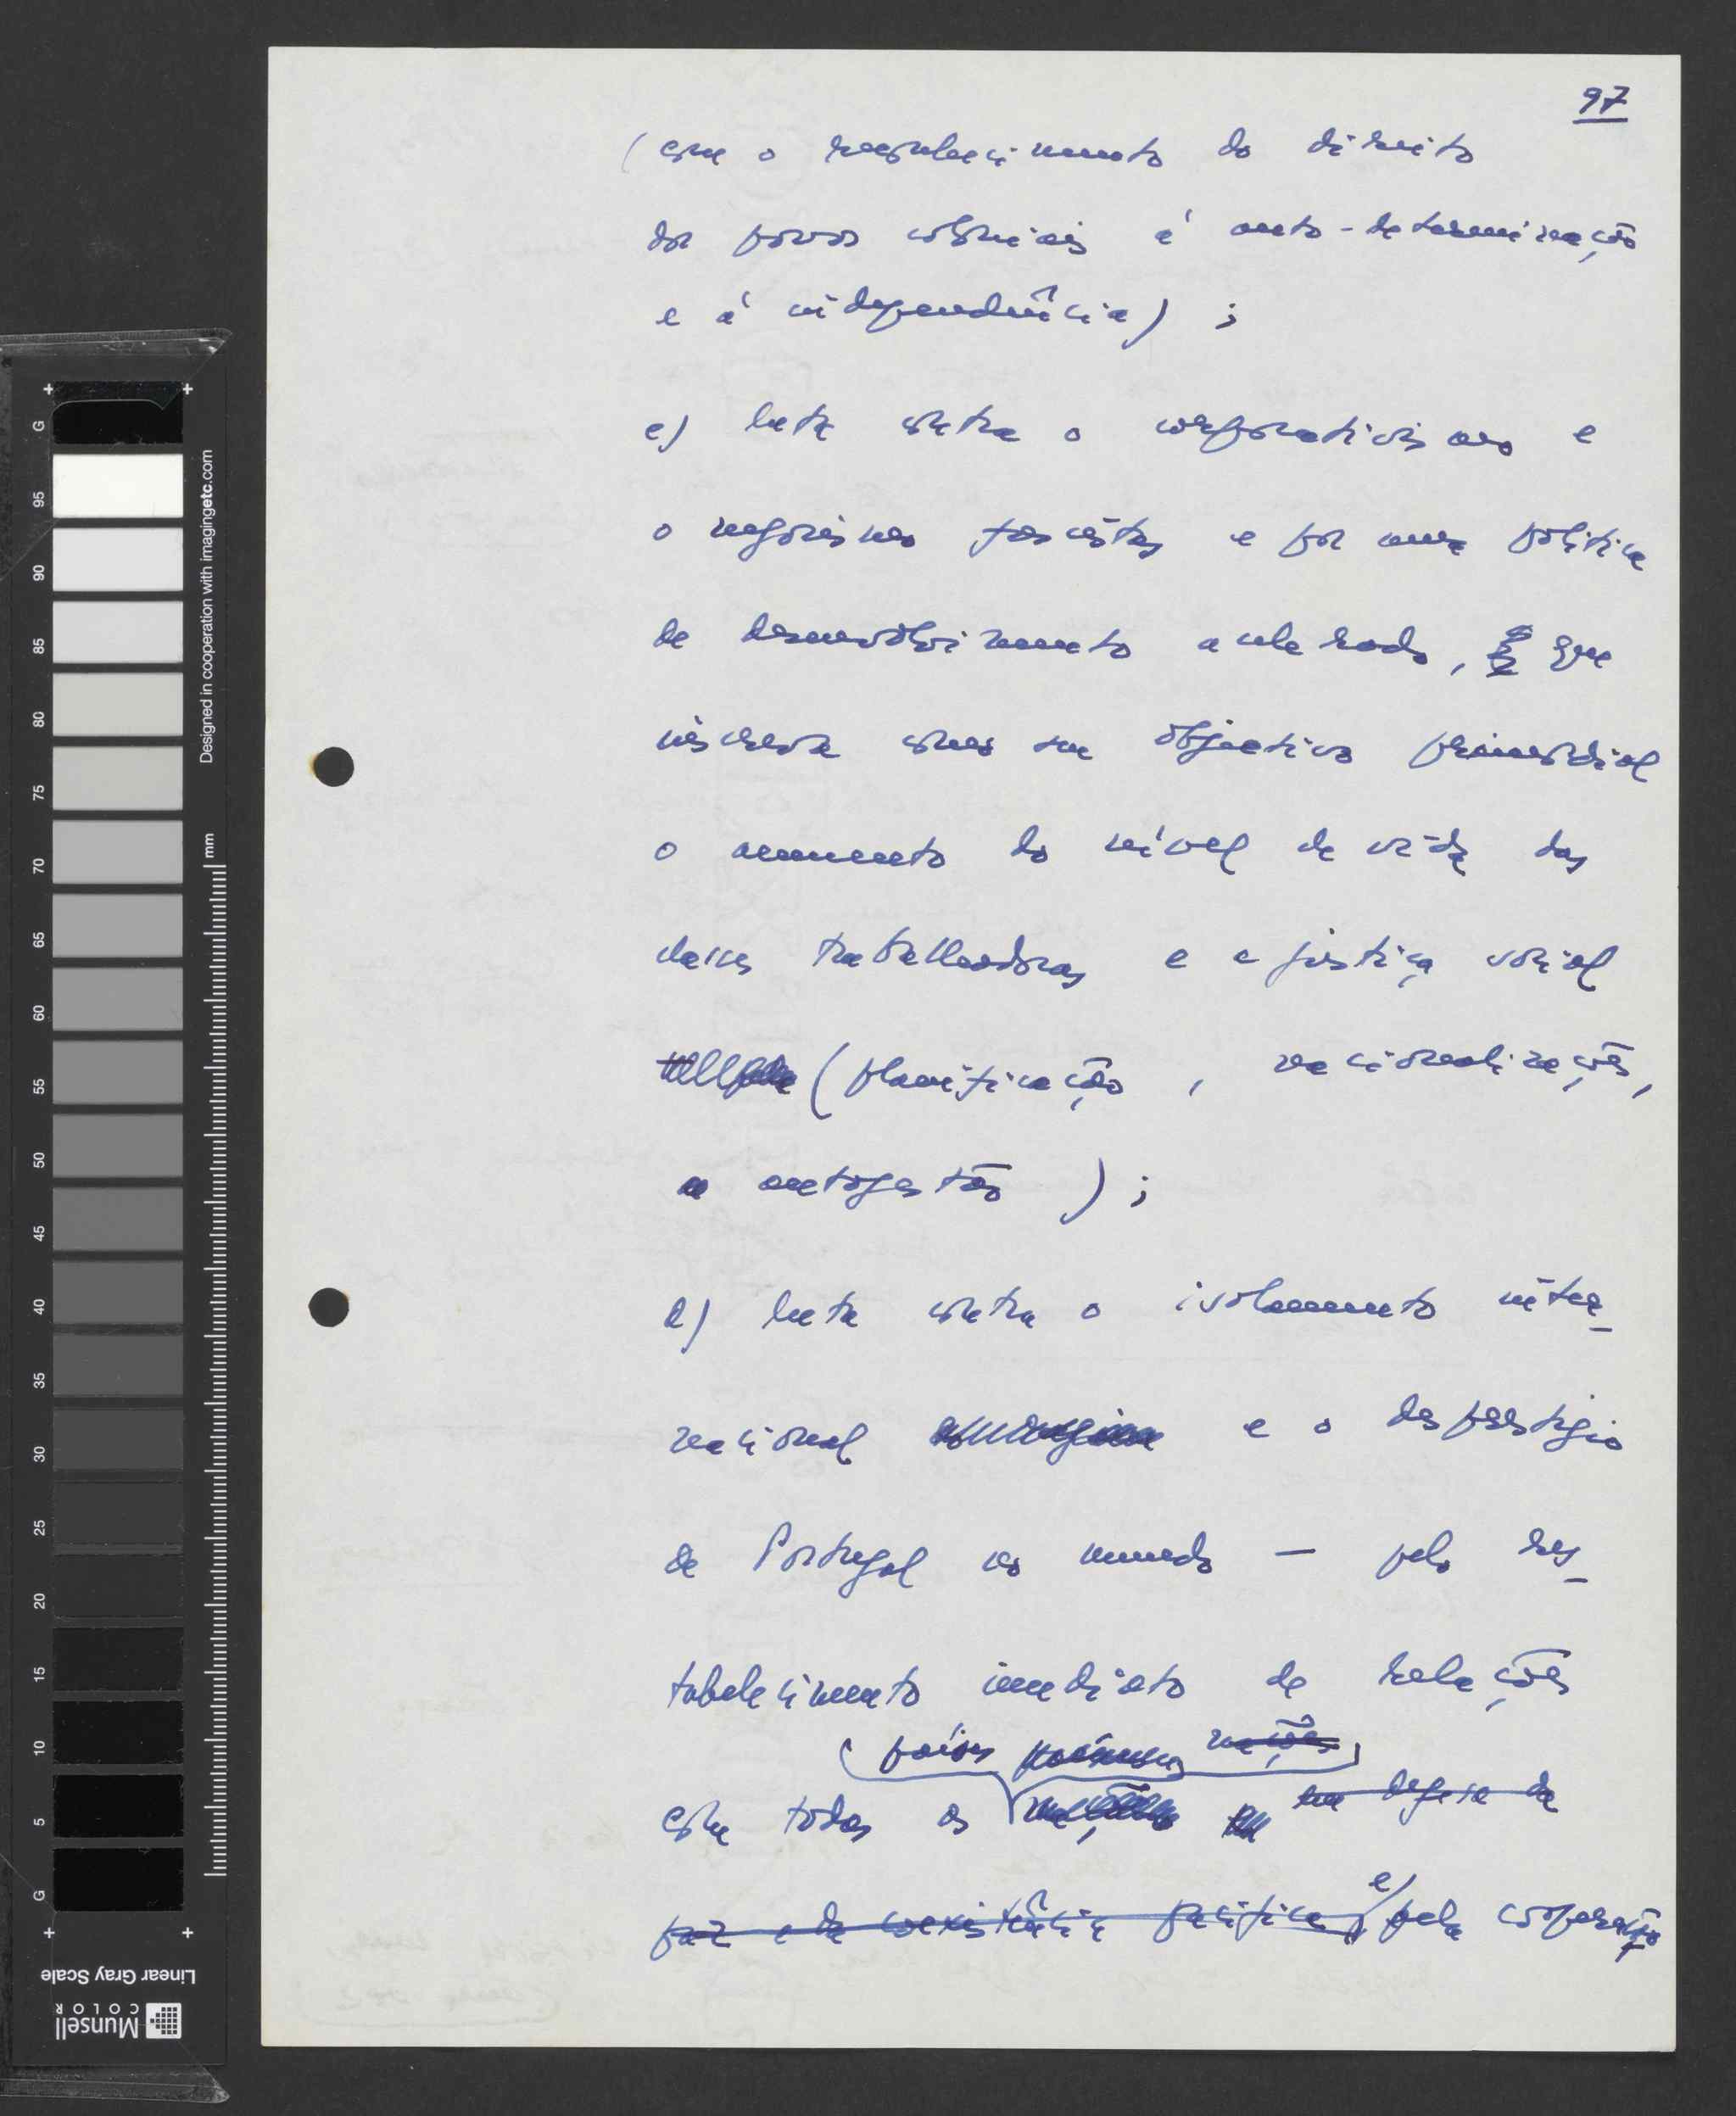 97
(com o reconhecimento do direito
dos povos coloniais à auto-determinação
e à independência) ;
c) luta contra o corporativismo e
o regime fascista e por uma política
de desenvolvimento acelerado, que
inscreva como seu objectivo primordial
o aumento do nível de vida das
classes trabalhadoras e a justiça social
(planificação, nacionalizações,
autogestão) ;
d) luta contra o isolamento inter-
nacional e o desprestígio
de Portugal no mundo — pelo res-
tabelecimento imediato de relações
países nações
com todos os na defesa da
paz e da coexistência pacífica, e pela cooperação
G 95 90 85 80 75 70 65 60 55 50 45 40 35 30 25 20 15 10 5 G
Designed in cooperation with imagingetc.com
mm
Linear Gray Scale
Munsell
COLOR